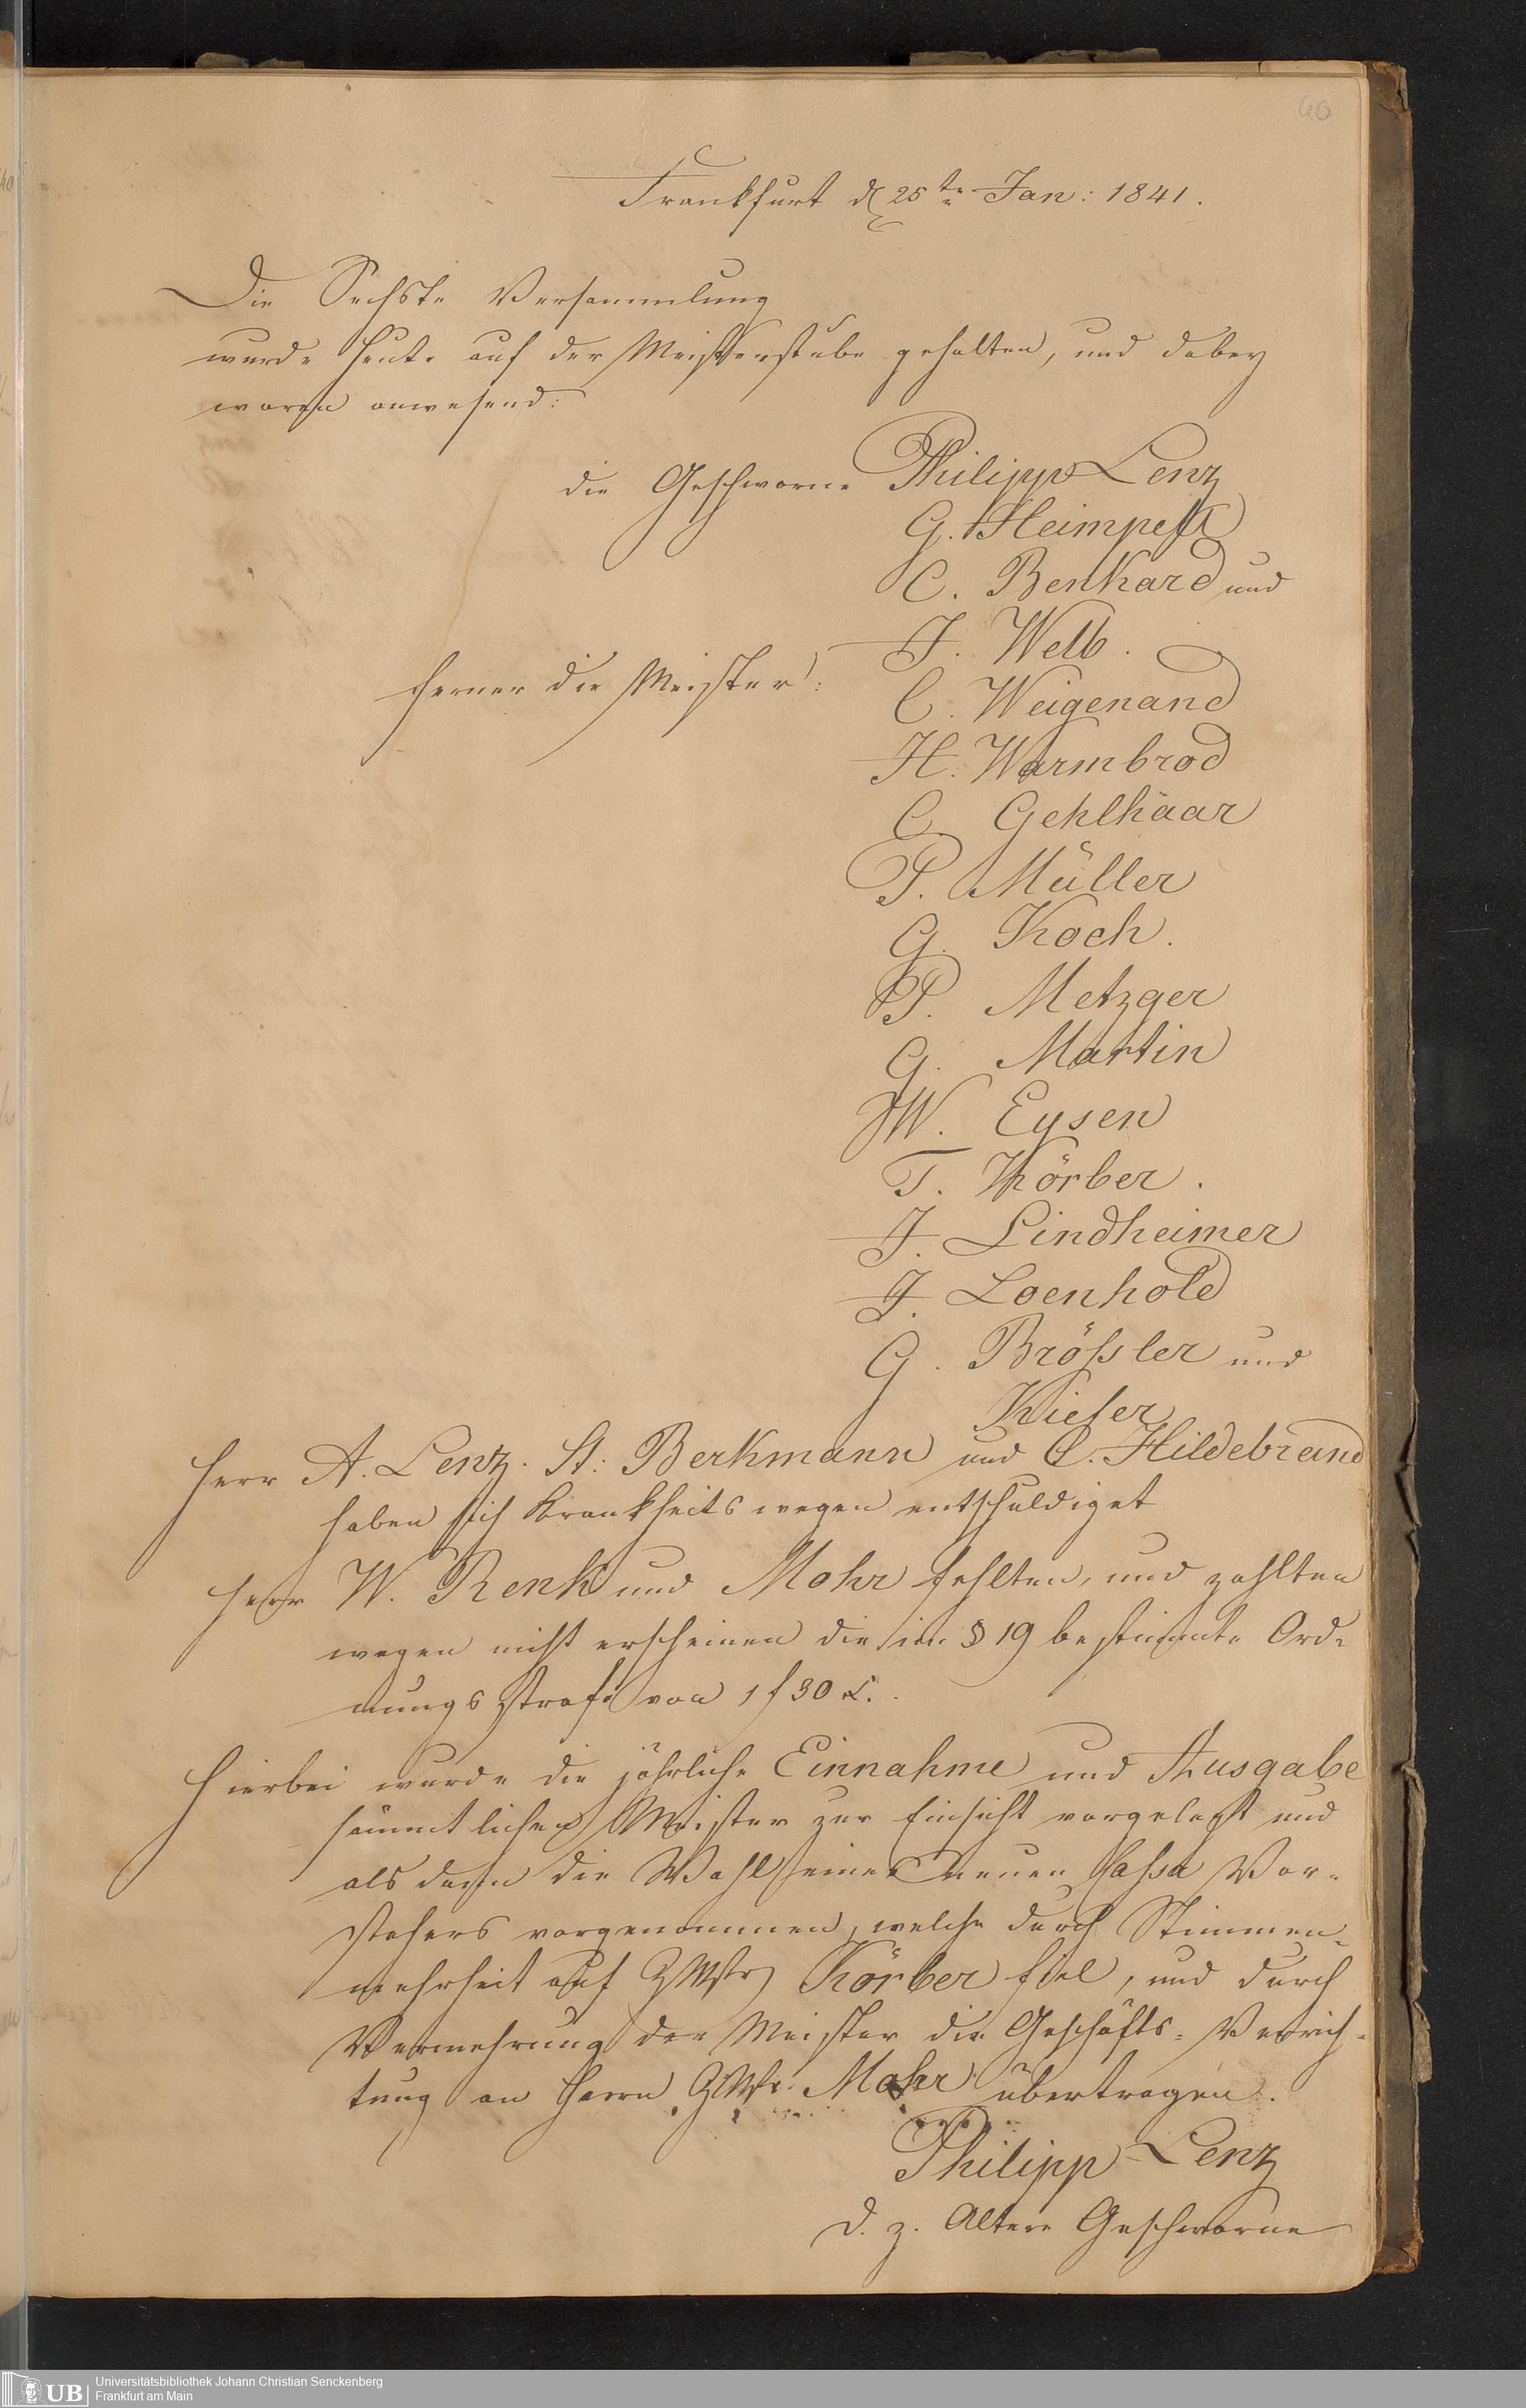 Frankfurt d 25te Jan: 1841.
Die Sechste Versammlung
wurde heute auf der Meisterstube gehalten, und dabey
waren anwesend:
die Geschworne Philipp Lenz
G. Heimpel
C. Benkard und
J. Welb.
ferner die Meister:
C. Weigenand
H. Warmbrod
C. Gehlhaar
P. Müller
G. Koch.
P. Metzger
G. Martin
W. Eysen
T. Körber.
J. Lindheimer
J. Loenhold
G. Brößler und
Kiefer
Herr A. Lenz. St: Berkmann und C. Hildebrand
haben sich Krankheits wegen entschuldiget
Herr W. Renk und Mohr fehlten, und zahlten
wegen nicht erscheinen die im § 19 bestimmte Ord-
nungs Strafe von 1 f 30 x.
Hierbei wurde die jährliche Einnahme und Ausgabe
sämmtlichen Meister zur Einsicht vorgelegt und
als dann die Wahl eines neuen Cassa Vor-
stehers vorgenommen, welche durch Stimmen-
mehrheit auf Körber fiel, und durch
Vermehrung der Meister die Geschäfts-Verrich-
tung an Herrn Mohr übertragen.
Philipp Lenz
d. z. Altere Geschworne
UB
Universitätsbibliothek Johann Christian Senckenberg
Frankfurt am Main